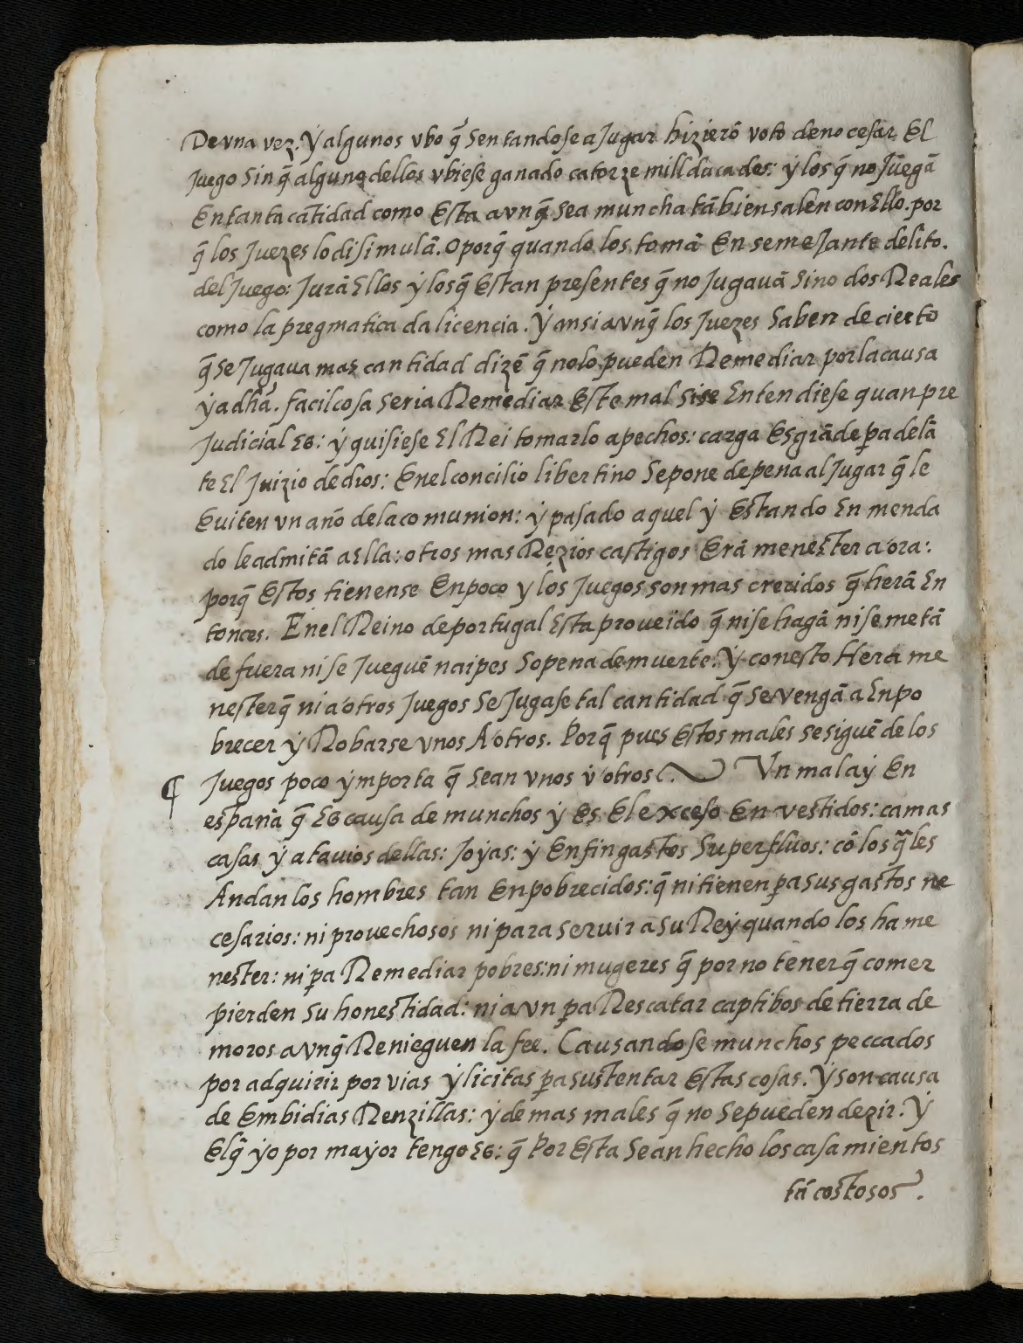 De vna vez. Y algunos vbo q̃ sentandose a Jugar hizierõ voto de no cesar El
Juego sin q̃ alguno dellos vbiese ganado catorze mill ducados: y los q̃ no Juegã
En tanta cãtidad como Esta avnq̃ sea muncha tãbien salen con Ello. por
q̃ los Juezes lo disimulã. O porq̃ quando los tomã En semejante delito.
del Juego: Jurã Ellos y los q̃ Estan presentes q̃ no Jugauã sino dos Reales
como la pregmatica da licencia. Y ansi avnq̃ los Juezes saben de cierto
q̃ se Jugaua mas cantidad dizẽ q̃ no lo pueden Remediar por la causa
ya dha. facil cosa seria Remediar Este mal si se Entendiese quan pre
Judicial Es: y quisiese El Rei tomarlo a pechos: carga Es grãde pa delã
te El Juizio de dios: En el concilio libertino se pone de pena al Jugar q̃ le
Euiten vn año de la comunion: y pasado aquel y Estando En menda
do le admitã a Ella: otros mas Rezios castigos Erã menester a ora:.
porq̃ Estos tienense En poco y los Juegos son mas crecidos q̃ herã En
tonces. En el Reino de portugal Esta proueido q̃ ni se hagã ni se metã
de fuera ni se Jueguẽ naipes so pena de muerte: Y con esto Hera me
nester q̃ ni a otros Juegos se Jugase tal cantidad q̃ se vengã a Enpo
brecer y Robarse vnos A otros. Porq̃ pues Estos males se siguẽ de los
¶ Juegos poco ymporta q̃ sean vnos v otros. Vn mal ay En
españa q̃ Es causa de munchos y Es El exceso En vestidos: camas
casas y atauios dellas: Joyas: y En fin gastos superfluos: cõ los q̃les
Andan los hombres tan Enpobrecidos: q̃ ni tienen pa sus gastos ne
cesarios: ni prouechosos ni para seruir a su Rey quando los ha me
nester: ni pa Remediar pobres: ni mugeres q̃ por no tener q̃ comer
pierden su honestidad: ni avn pa Rescatar captibos de tierra de
moros avnq̃ Renieguen la fee. Causandose munchos peccados
por adquirir por vias ylicitas pa sustentar Estas cosas. Y son causa
de Embidias Renzillas: y de mas males q̃ no se pueden dezir: Y
El q̃ yo por mayor tengo Es: q̃ Por Esta se an hecho los casamientos
tã costosos.